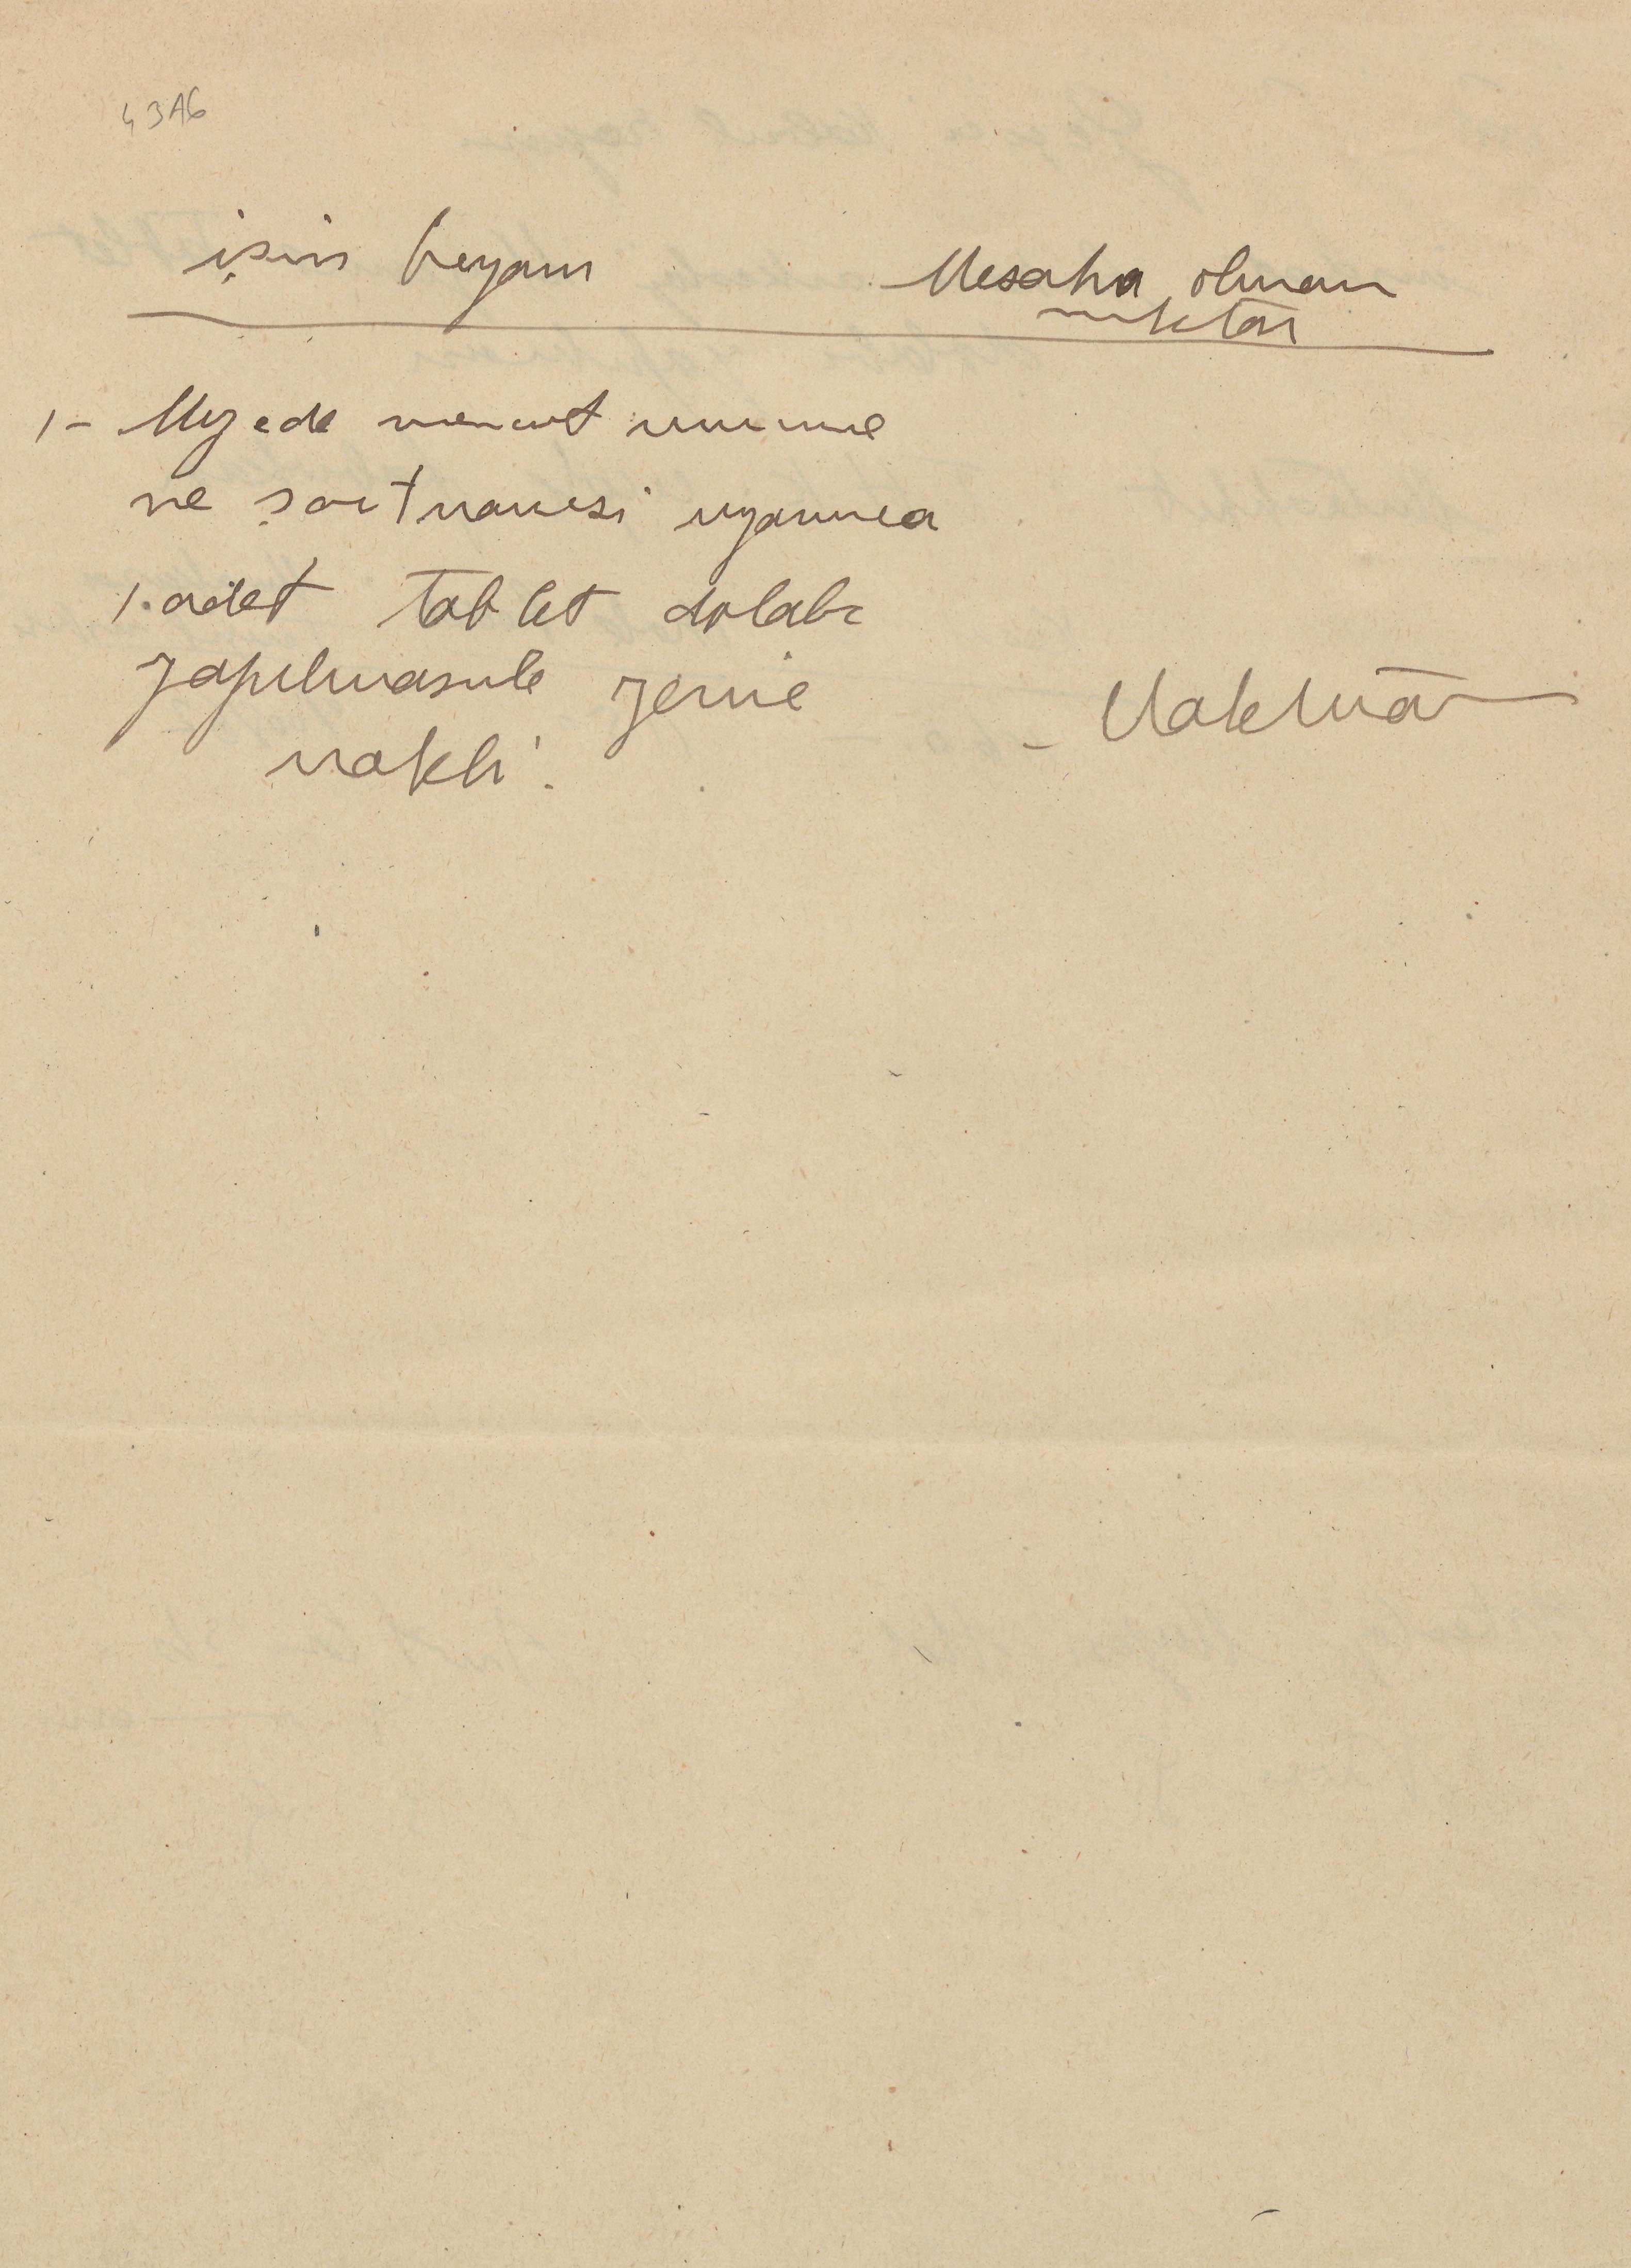 43A6
işin beyanı Mesaha olunan
miktar
1- Müzede mevcut numune
ve şartnamesi uyarınca
1. adet tablet dolabı
yapılmasile yerine
nakli.
- Maktuan